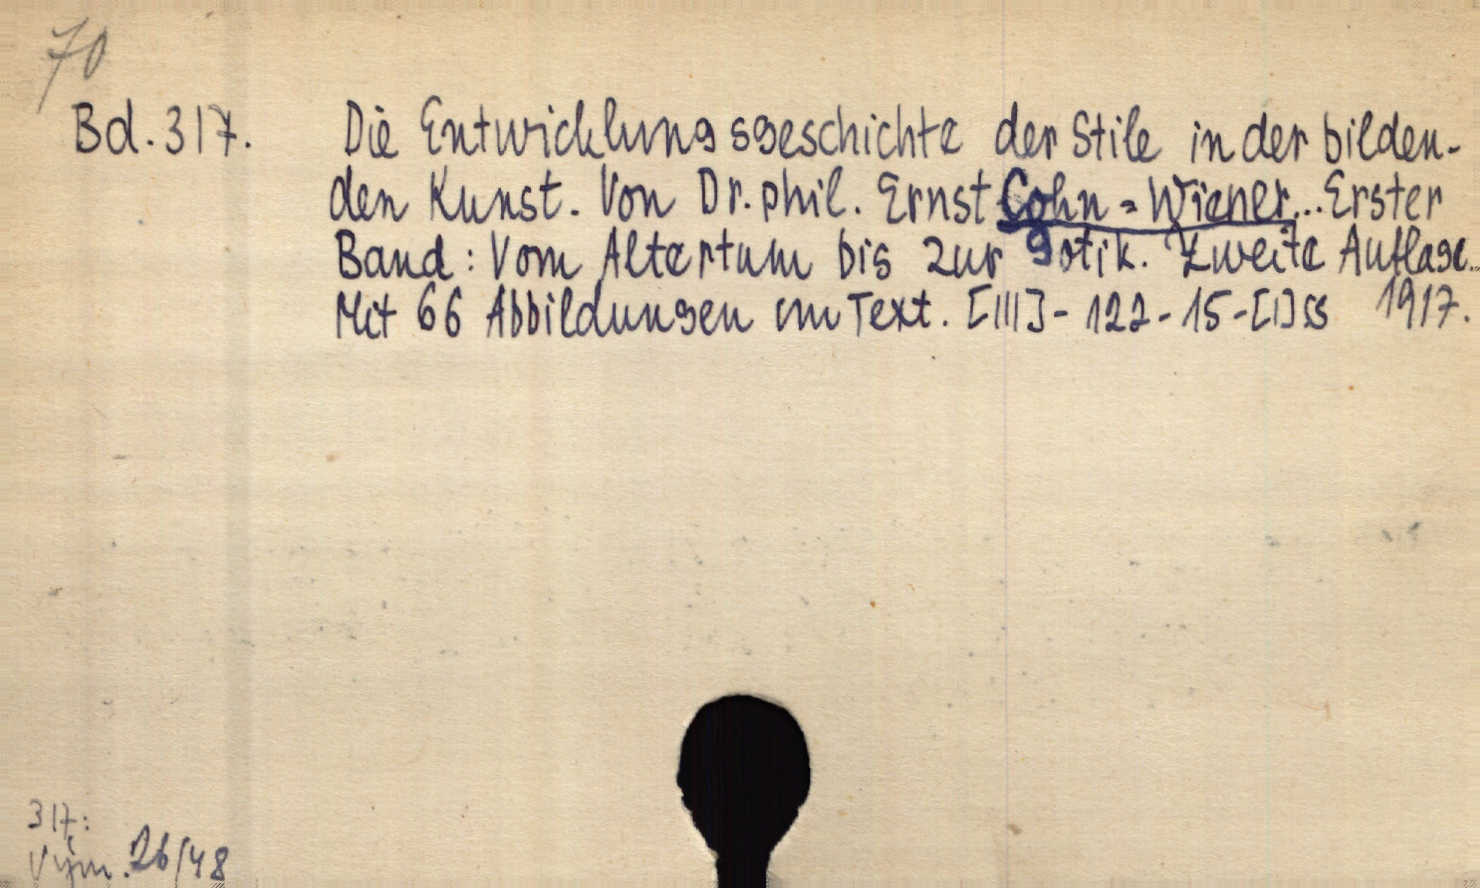 70
Bd. 317. Die Entwicklungsgeschichte der Stile in der bilden-
den Kunst. Von Dr. phil. Ernst Cohn-Wiener... Erster
Band: Vom Altertum bis zur Gotik. Zweite Auflage...
Mit 66 Abbildungen im Text. [III]-122-15-[I]SS 1917.
317:
Vým. 26/48